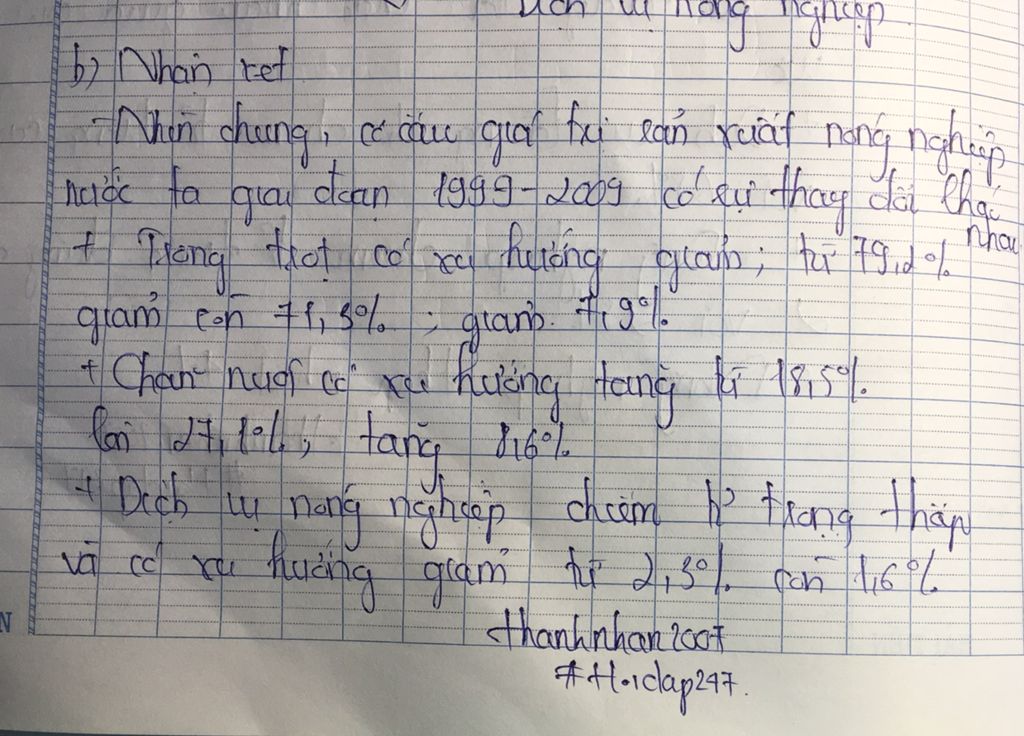 Dịch vụ nông nghiệp
b) Nhận xét
- Nhìn chung, cơ cấu giá trị sản xuất nông nghiệp
nước ta giai đoạn 1999-2009 có sự thay đổi khác
nhau
+ Trồng trọt có xu hướng giảm; từ 79,2%
giảm còn 71,3%; giảm 7,9%
+ Chăn nuôi có xu hướng tăng từ 18,5%
lên 27,1%; tăng 8,6%
+ Dịch vụ nông nghiệp chiếm tỉ trọng thấp
và có xu hướng giảm từ 2,3% còn 1,6%
thanhnhan2007
#Hoidap247.
N